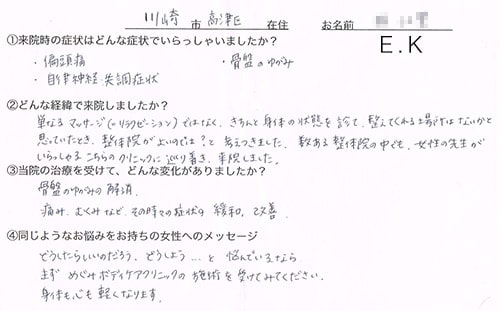 川崎 市 高津区 在住 お名前
E.K
①来院時の症状はどんな症状でいらっしゃいましたか？
・偏頭痛 ・骨盤のゆがみ
・自律神経失調症状
②どんな経緯で来院しましたか？
単なるマッサージ(=リラクゼーション)ではなく、きちんと身体の状態を診て、整えてくれる場所はないかと
思っていたとき、整体院がよいのでは？と考えつきました。数ある整体院の中でも、女性の先生が
いらっしゃるこちらのクリニックに巡り着き、来院しました。
③当院の治療を受けて、どんな変化がありましたか？
骨盤のゆがみの解消、
痛み、むくみなど、その時々の症状の緩和、改善
④同じようなお悩みをお持ちの女性へのメッセージ
どうしたらいいのだろう、どうしよう…と悩んでいるなら
まず めぐみボディケアクリニックの施術を受けてみてください。
身体も心も軽くなります。